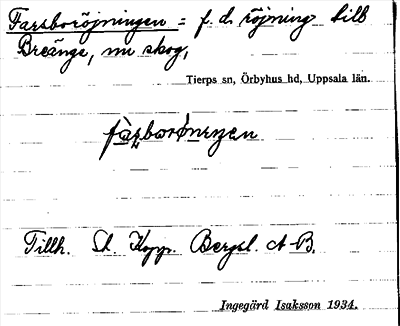 Farsboröjningen = f. d. röjning till
Breänge, nu skog,
Tierps sn, Örbyhus hd, Uppsala län.
Tillh. St. Kopp. Bergsl. A-B.
Ingegärd Isaksson 1934.